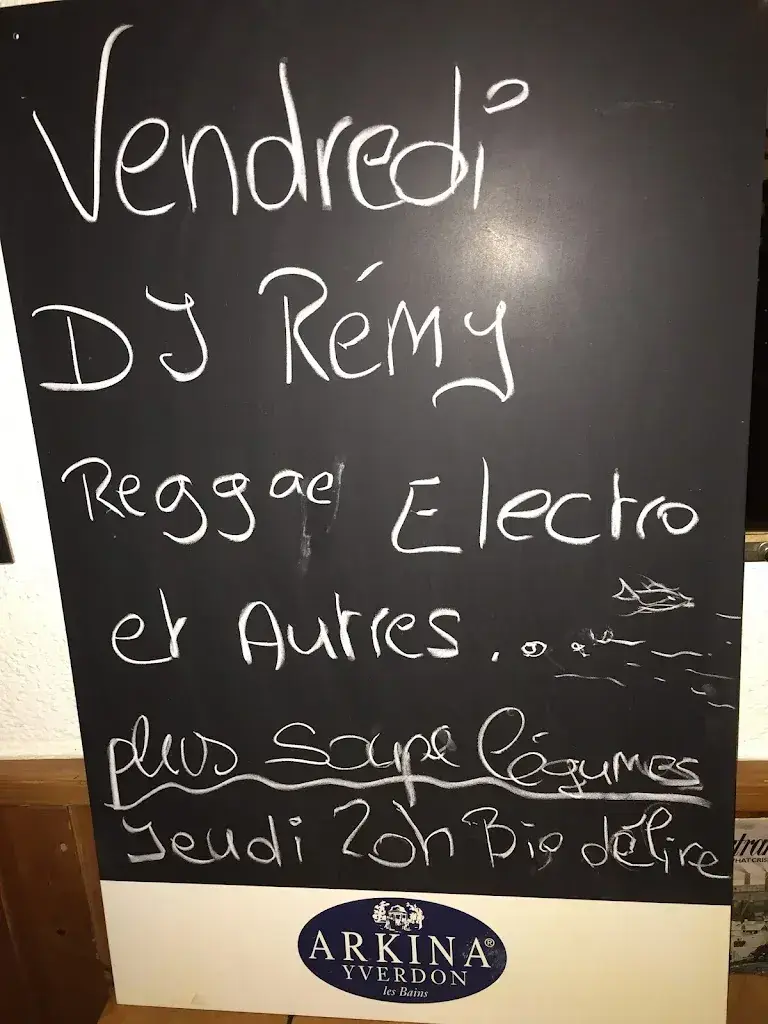 Vendredi
DJ Rémy
Reggae Electro
et Autres...
plus soupe légumes
Jeudi 20h Bio délire
ARKINA®
YVERDON
les Bains